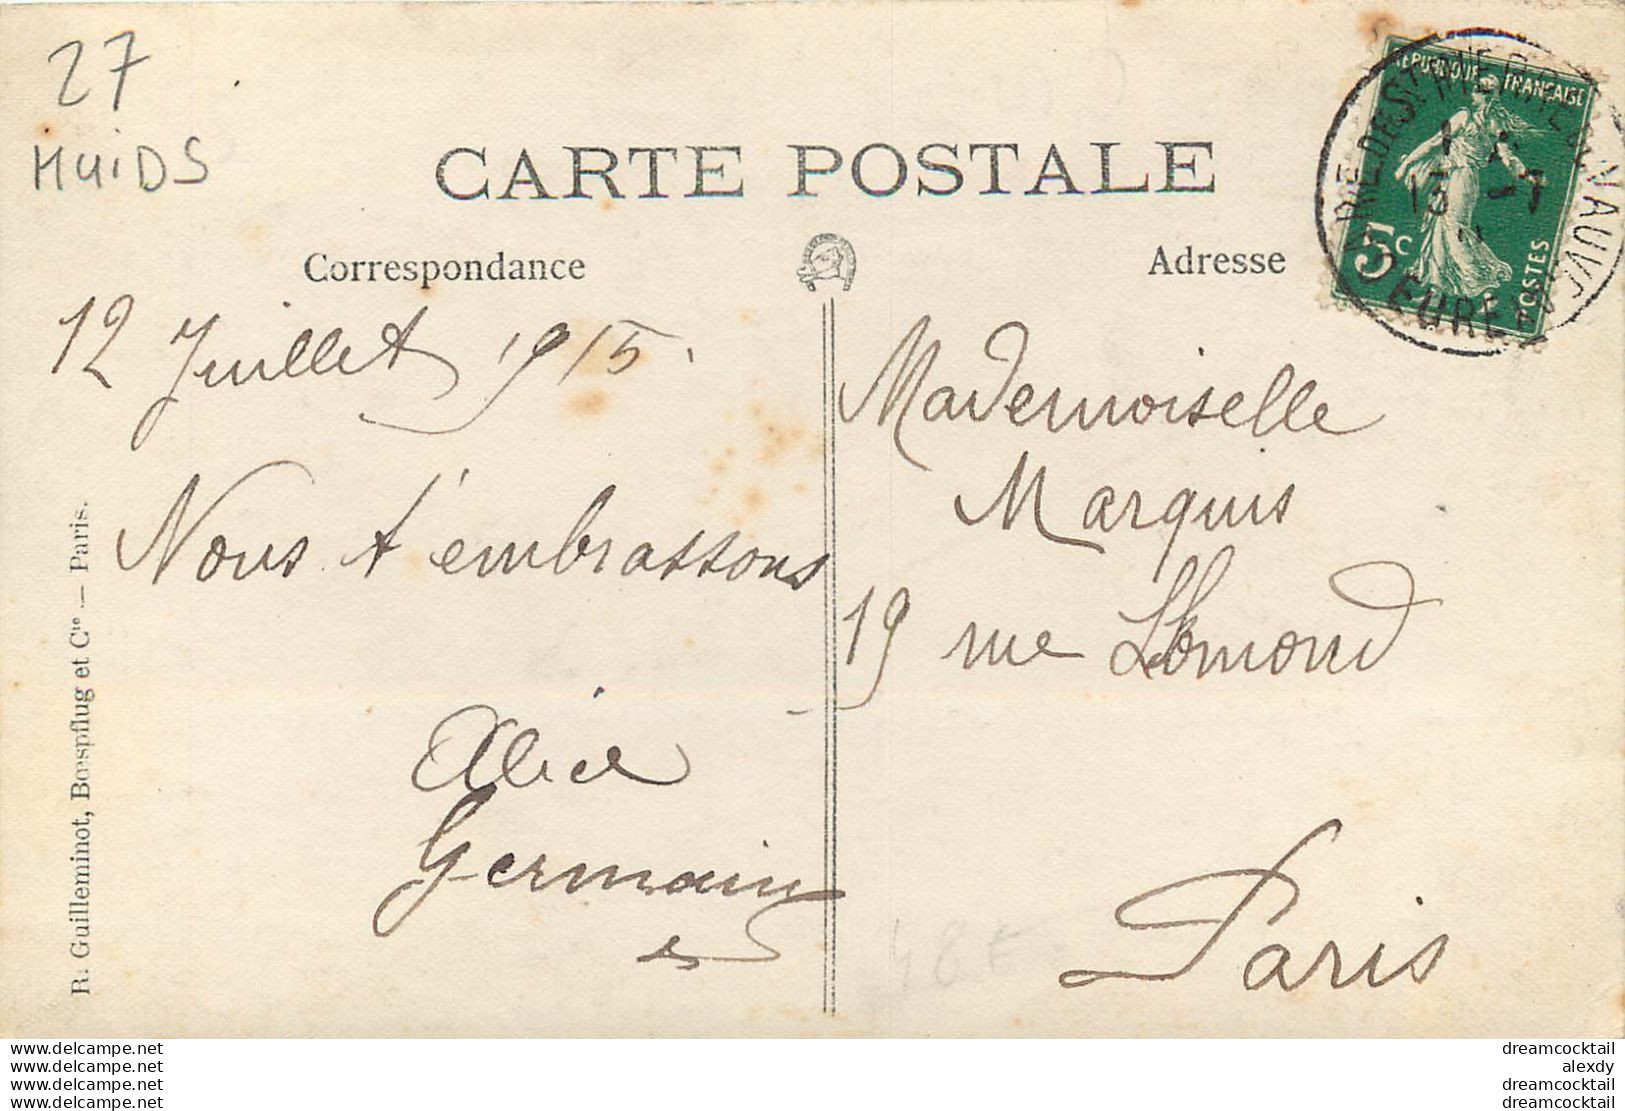 27
MUIDS
CARTE POSTALE
Correspondance
Adresse
REPUBLIQUE FRANÇAISE
5c
POSTES
EURE
13 -7
12 Juillet 1915.
Nous t'embrassons
Alice
Germaine
Mademoiselle
Marquis
19 rue Lhomond
Paris
48€
R. Guilleminot, Bœspflug et Cie — Paris.
www.delcampe.net
www.delcampe.net
www.delcampe.net
www.delcampe.net
dreamcocktail
alexdy
dreamcocktail
dreamcocktail